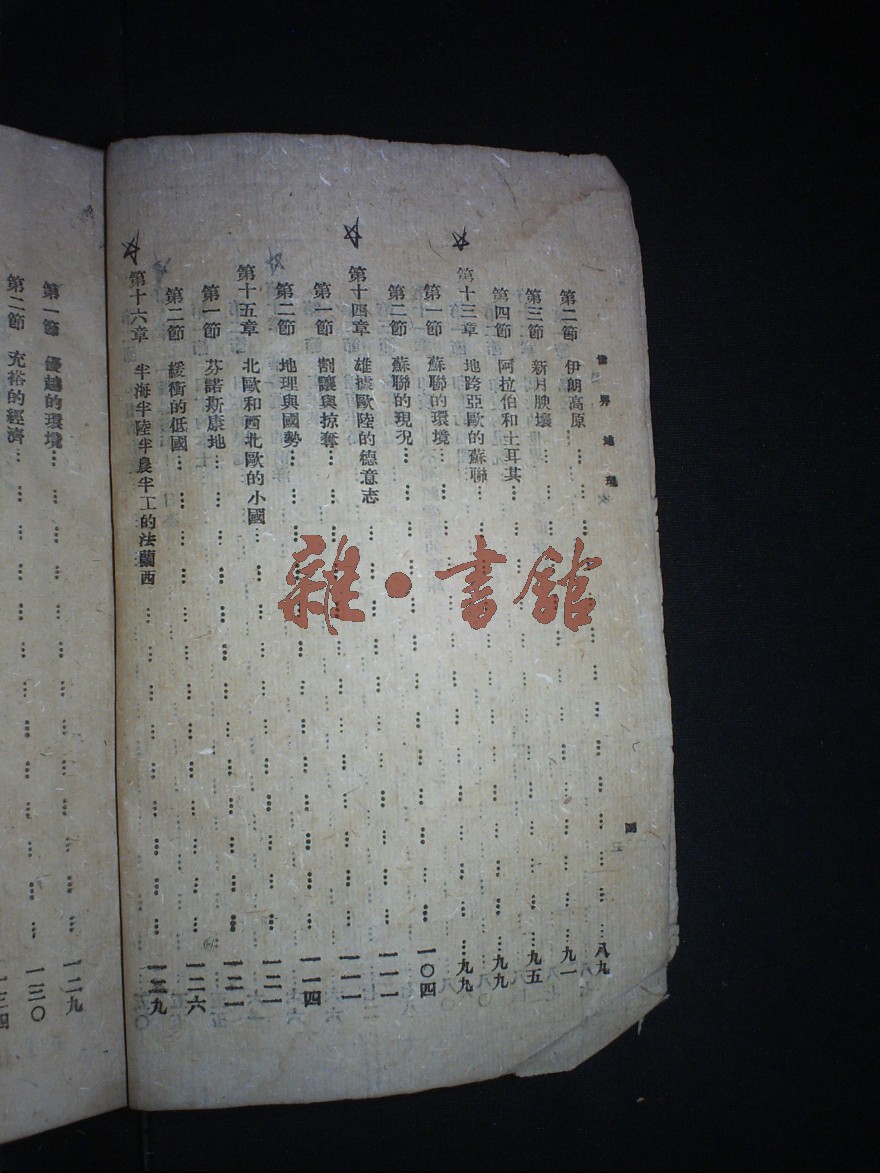 世界地理
四
第二節 伊朗高原……八九
第三節 新月腴壤……九一
第四節 阿拉伯和土耳其……九五
第十三章 地跨亞歐的蘇聯……九九
第一節 蘇聯的環境……九九
第二節 蘇聯的現況……一〇四
第十四章 雄據歐陸的德意志……一一一
第一節 割讓與掠奪……一一一
第二節 地理與國勢……一一四
第十五章 北歐和西北歐的小國……一二一
第一節 芬諾斯康地……一二一
第二節 緩衝的低國……一二六
第十六章 半海半陸半農半工的法蘭西……一二九
第一節 優越的環境……一二九
第二節 充裕的經濟……一三〇
一三四
雜·書館